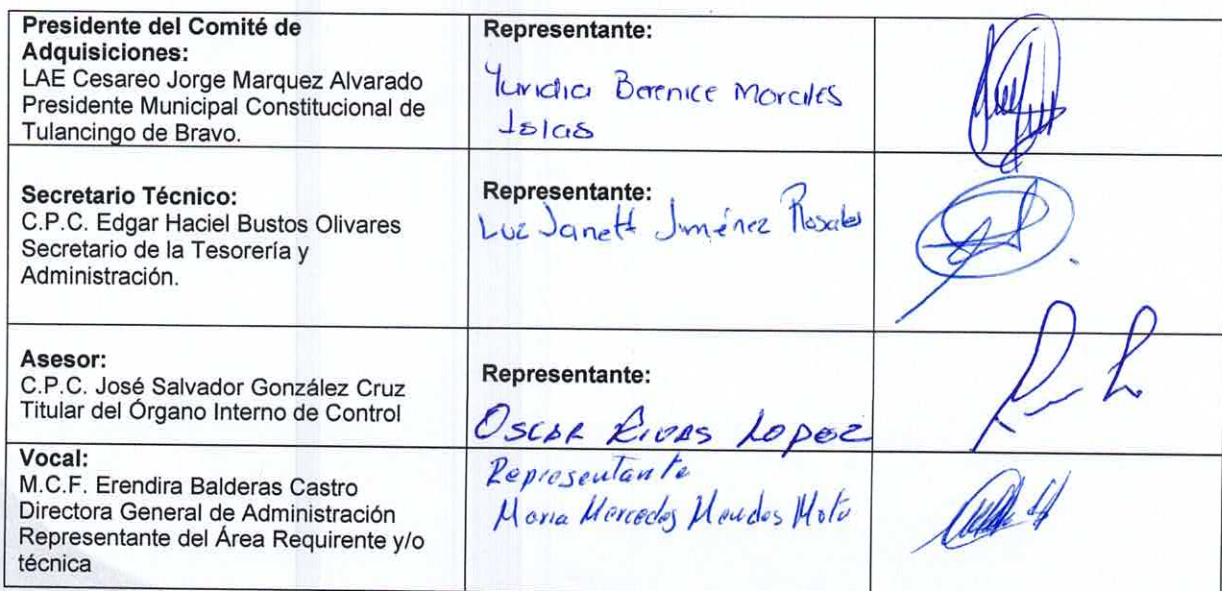 Presidente del Comité de
Adquisiciones:
LAE Cesareo Jorge Marquez Alvarado
Presidente Municipal Constitucional de
Tulancingo de Bravo.
Representante:
Yuridia Berenice Morales
Islas
Secretario Técnico:
C.P.C. Edgar Haciel Bustos Olivares
Secretario de la Tesorería y
Administración.
Representante:
Luz Janett Jiménez Rosales
Asesor:
C.P.C. José Salvador González Cruz
Titular del Órgano Interno de Control
Representante:
OSCAR RIVAS LOPEZ
Vocal:
M.C.F. Erendira Balderas Castro
Directora General de Administración
Representante del Área Requirente y/o
técnica
Representante
Maria Mercedes